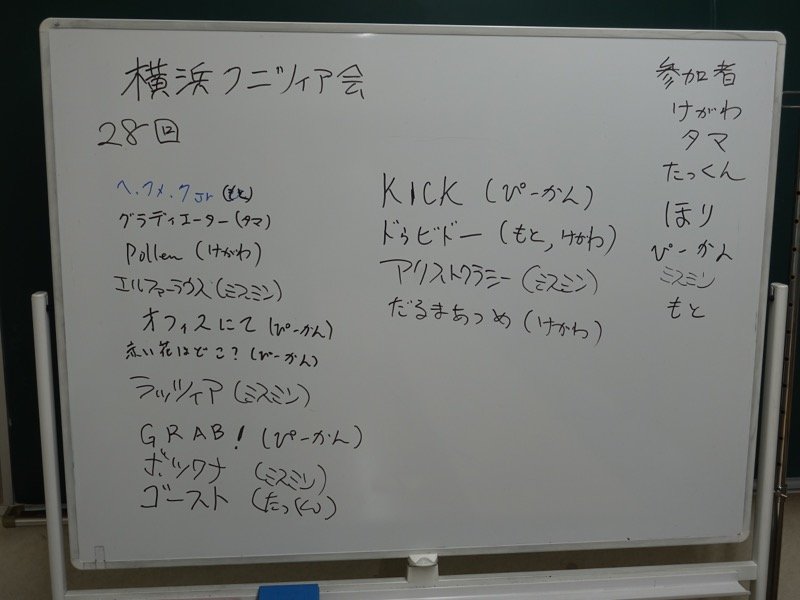 横浜クニツィア会
28回
ヘックメックJr (もと)
グラディエーター (タマ)
Pollen (けがわ)
エルファーラウズ (ミスミン)
オフィスにて (ぴーかん)
赤い花はどこ? (ぴーかん)
ラッツィア (ミスミン)
GRAB! (ぴーかん)
ボツワナ (ミスミン)
ゴースト (たっくん)
KICK (ぴーかん)
ドゥビドー (もと, けがわ)
アリストクラシー (ミスミン)
だるまあつめ (けがわ)
参加者
けがわ
タマ
たっくん
ほり
ぴーかん
ミスミン
もと